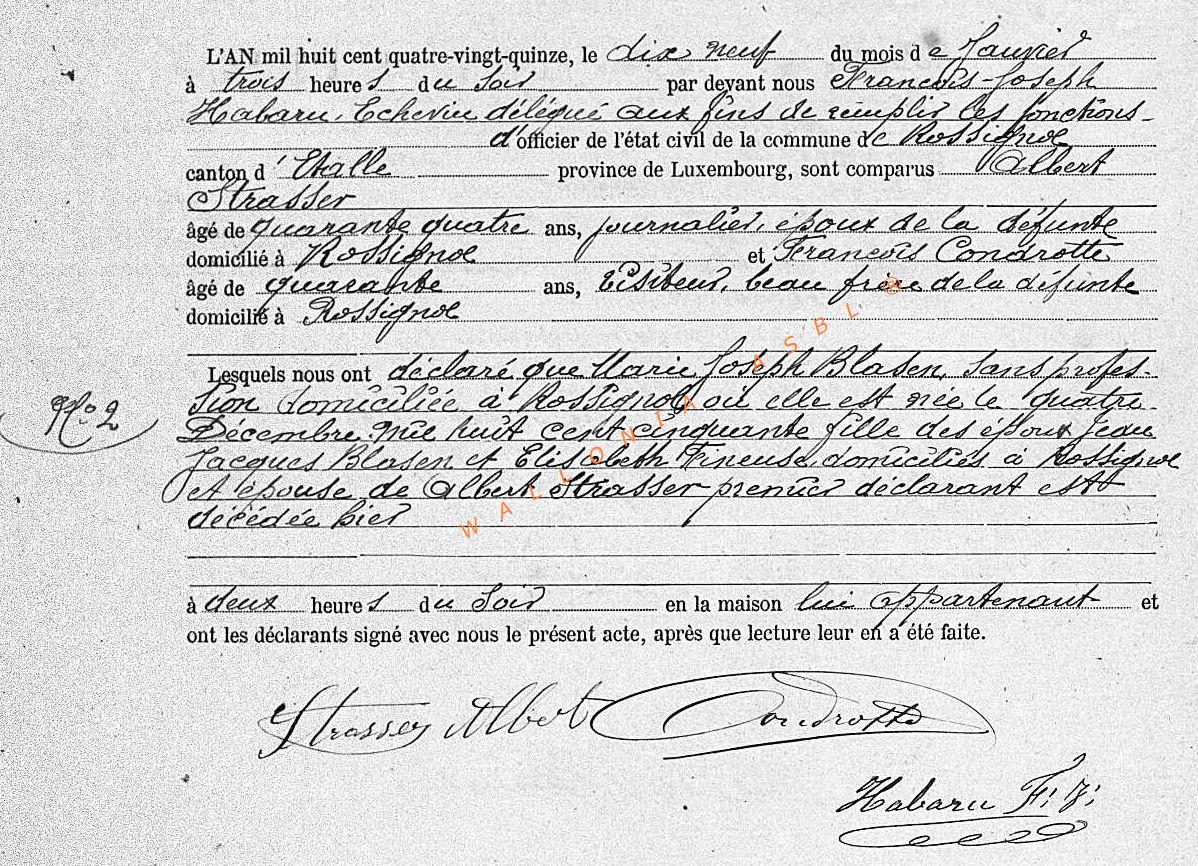 L'AN mil huit cent quatre-vingt-quinze, le dix neuf du mois de Janvier
à trois heures du soir par devant nous François-Joseph
Habaru, Echevin délégué aux fins de remplir les fonctions
d'officier de l'état civil de la commune de Rossignol
canton d'Etalle province de Luxembourg, sont comparus Albert
Strasser
âgé de quarante quatre ans, journalier, époux de la défunte
domicilié à Rossignol et François Condrotte
âgé de quarante ans, visiteur, beau frère de la défunte
domicilié à Rossignol
Lesquels nous ont déclaré que Marie Joseph Blasen, sans profes-
No 2
sion domiciliée à Rossignol où elle est née le quatre
Décembre mil huit cent cinquante fille des époux Jean
Jacques Blasen et Elisabeth Fineuse domiciliés à Rossignol
et épouse de Albert Strasser premier déclarant est
décédée hier
à deux heures du soir en la maison lui appartenant et
ont les déclarants signé avec nous le présent acte, après que lecture leur en a été faite.
Strasser Albert Condrotte
Habaru F: J:
WALLONIA ASBL ©